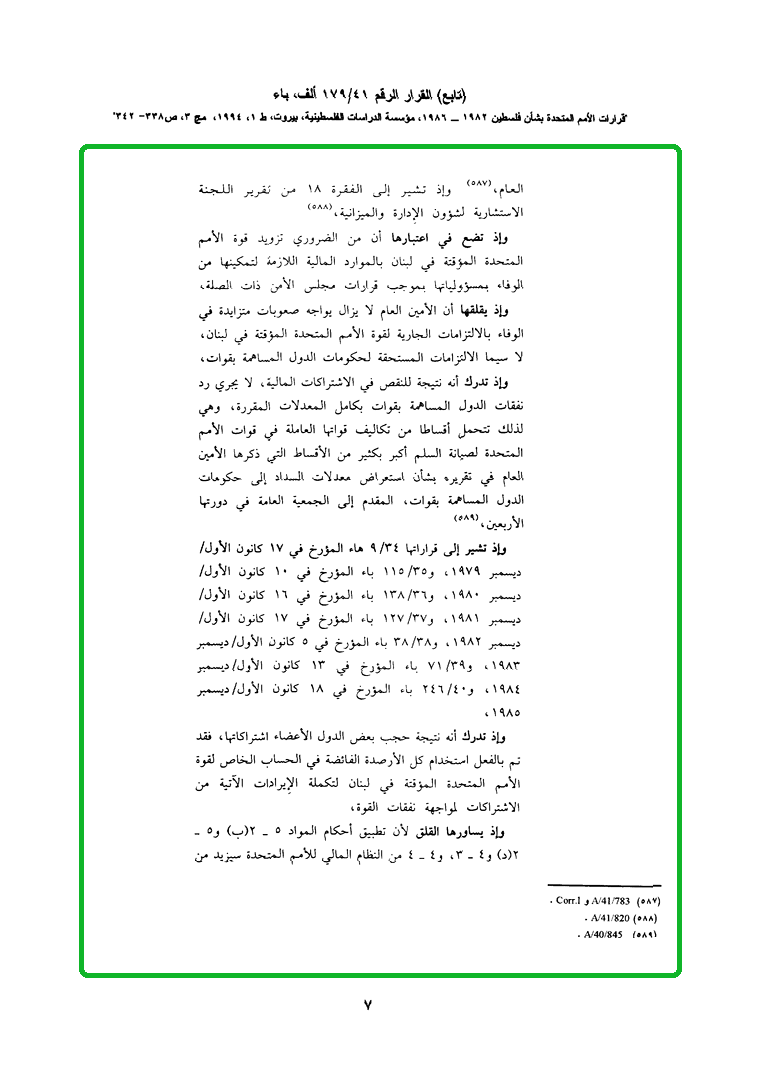 (تابع) القرار الرقم ١٧٩/٤١ ألف، باء
"قرارات الأمم المتحدة بشأن فلسطين ١٩٨٢ ــ ١٩٨٦، مؤسسة الدراسات الفلسطينية، بيروت، ط ١، ١٩٩٤، مج ٣، ص٣٣٨- ٣٤٢"
العام،(٥٨٧) وإذ تشير إلى الفقرة ١٨ من تقرير اللجنة
الاستشارية لشؤون الإدارة والميزانية،(٥٨٨)
وإذ تضع في اعتبارها أن من الضروري تزويد قوة الأمم
المتحدة المؤقتة في لبنان بالموارد المالية اللازمة لتمكينها من
الوفاء بمسؤولياتها بموجب قرارات مجلس الأمن ذات الصلة،
وإذ يقلقها أن الأمين العام لا يزال يواجه صعوبات متزايدة في
الوفاء بالالتزامات الجارية لقوة الأمم المتحدة المؤقتة في لبنان،
لا سيما الالتزامات المستحقة لحكومات الدول المساهمة بقوات،
وإذ تدرك أنه نتيجة للنقص في الاشتراكات المالية، لا يجري رد
نفقات الدول المساهمة بقوات بكامل المعدلات المقررة، وهي
لذلك تتحمل أقساطا من تكاليف قواتها العاملة في قوات الأمم
المتحدة لصيانة السلم أكبر بكثير من الأقساط التي ذكرها الأمين
العام في تقريره بشأن استعراض معدلات السداد إلى حكومات
الدول المساهمة بقوات، المقدم إلى الجمعية العامة في دورتها
الأربعين،(٥٨٩)
وإذ تشير إلى قراراتها ٩/٣٤ هاء المؤرخ في ١٧ كانون الأول/
ديسمبر ١٩٧٩، و١١٥/٣٥ باء المؤرخ في ١٠ كانون الأول/
ديسمبر ١٩٨٠، و١٣٨/٣٦ باء المؤرخ في ١٦ كانون الأول/
ديسمبر ١٩٨١، و١٢٧/٣٧ باء المؤرخ في ١٧ كانون الأول/
ديسمبر ١٩٨٢، و٣٨/٣٨ باء المؤرخ في ٥ كانون الأول/ديسمبر
١٩٨٣، و٧١/٣٩ باء المؤرخ في ١٣ كانون الأول/ديسمبر
١٩٨٤، و٢٤٦/٤٠ باء المؤرخ في ١٨ كانون الأول/ديسمبر
١٩٨٥،
وإذ تدرك أنه نتيجة حجب بعض الدول الأعضاء اشتراكاتها، فقد
تم بالفعل استخدام كل الأرصدة الفائضة في الحساب الخاص لقوة
الأمم المتحدة المؤقتة في لبنان لتكملة الإيرادات الآتية من
الاشتراكات لمواجهة نفقات القوة،
وإذ يساورها القلق لأن تطبيق أحكام المواد ٥ ــ ٢(ب) و٥ ــ
٢(د) و٤ ــ ٣، و٤ ــ ٤ من النظام المالي للأمم المتحدة سيزيد من
(٥٨٧) A/41/783 و Corr.1 .
(٥٨٨) A/41/820 .
(٥٨٩) A/40/845 .
٧